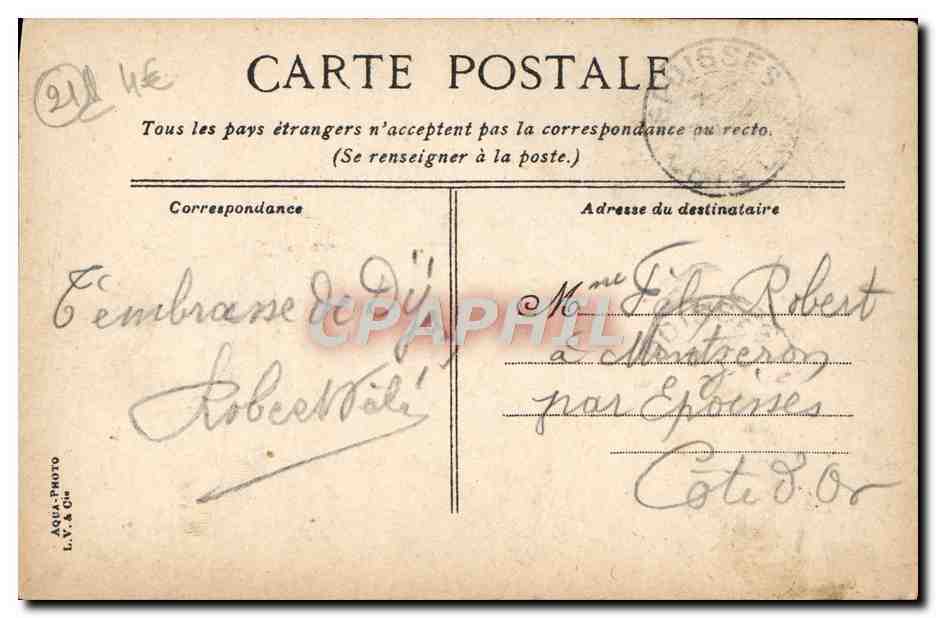 21 4€
CARTE POSTALE
EPOISSES
Tous les pays étrangers n'acceptent pas la correspondance au recto.
(Se renseigner à la poste.)
Correspondance
T'embrasse de Dij
Robert
AQUA-PHOTO
L.V. & Cie
CPAPHIL
Adresse du destinataire
Mme Robert
à Montgeron
par Epoisses
Côte d'Or